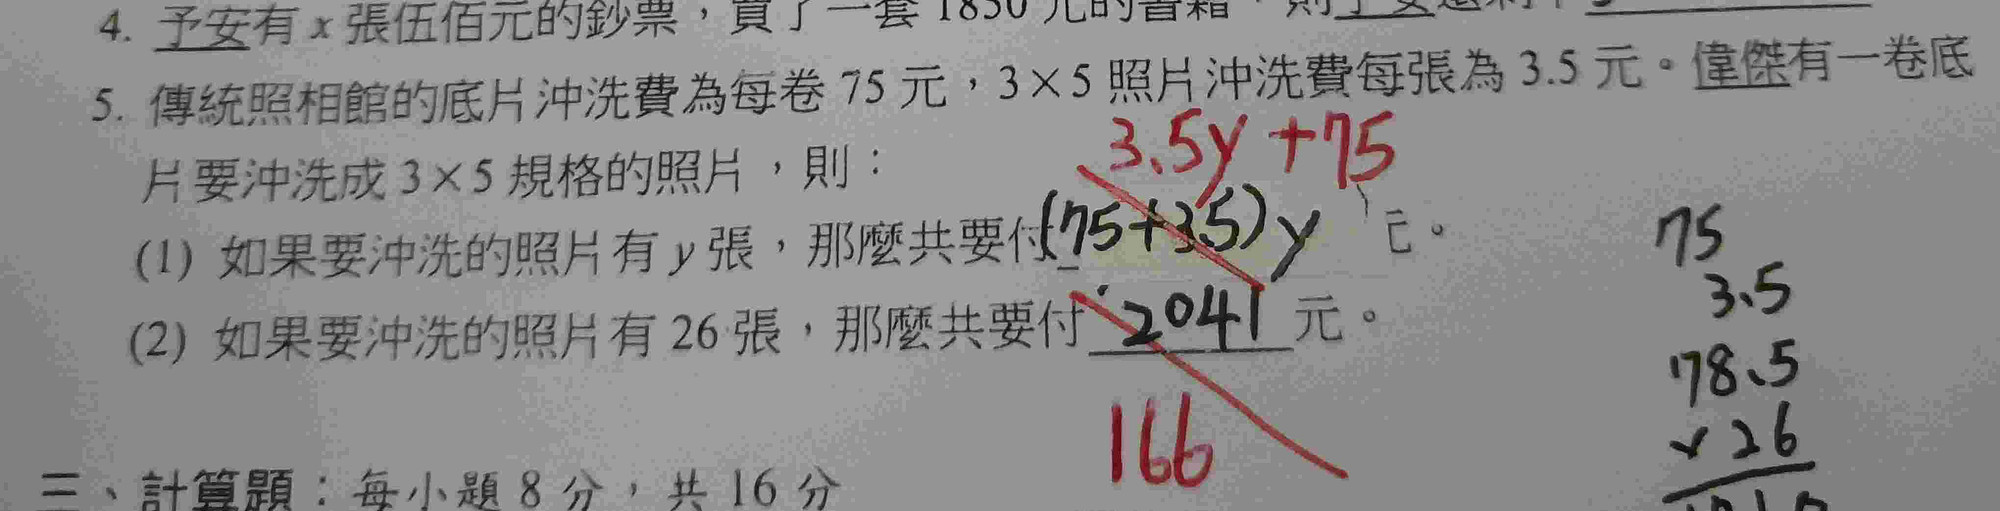 4. 予安有 x 張伍佰元的鈔票，買了一套 1850 元的書籍，則予安還剩下
5. 傳統照相館的底片沖洗費為每卷 75 元，3×5 照片沖洗費每張為 3.5 元。偉傑有一卷底
片要沖洗成 3×5 規格的照片，則：
3.5y+75
(1) 如果要沖洗的照片有 y 張，那麼共要付(75+3.5)y 元。
(2) 如果要沖洗的照片有 26 張，那麼共要付 2041 元。
166
75
3.5
78.5
×26
三、計算題：每小題 8 分，共 16 分